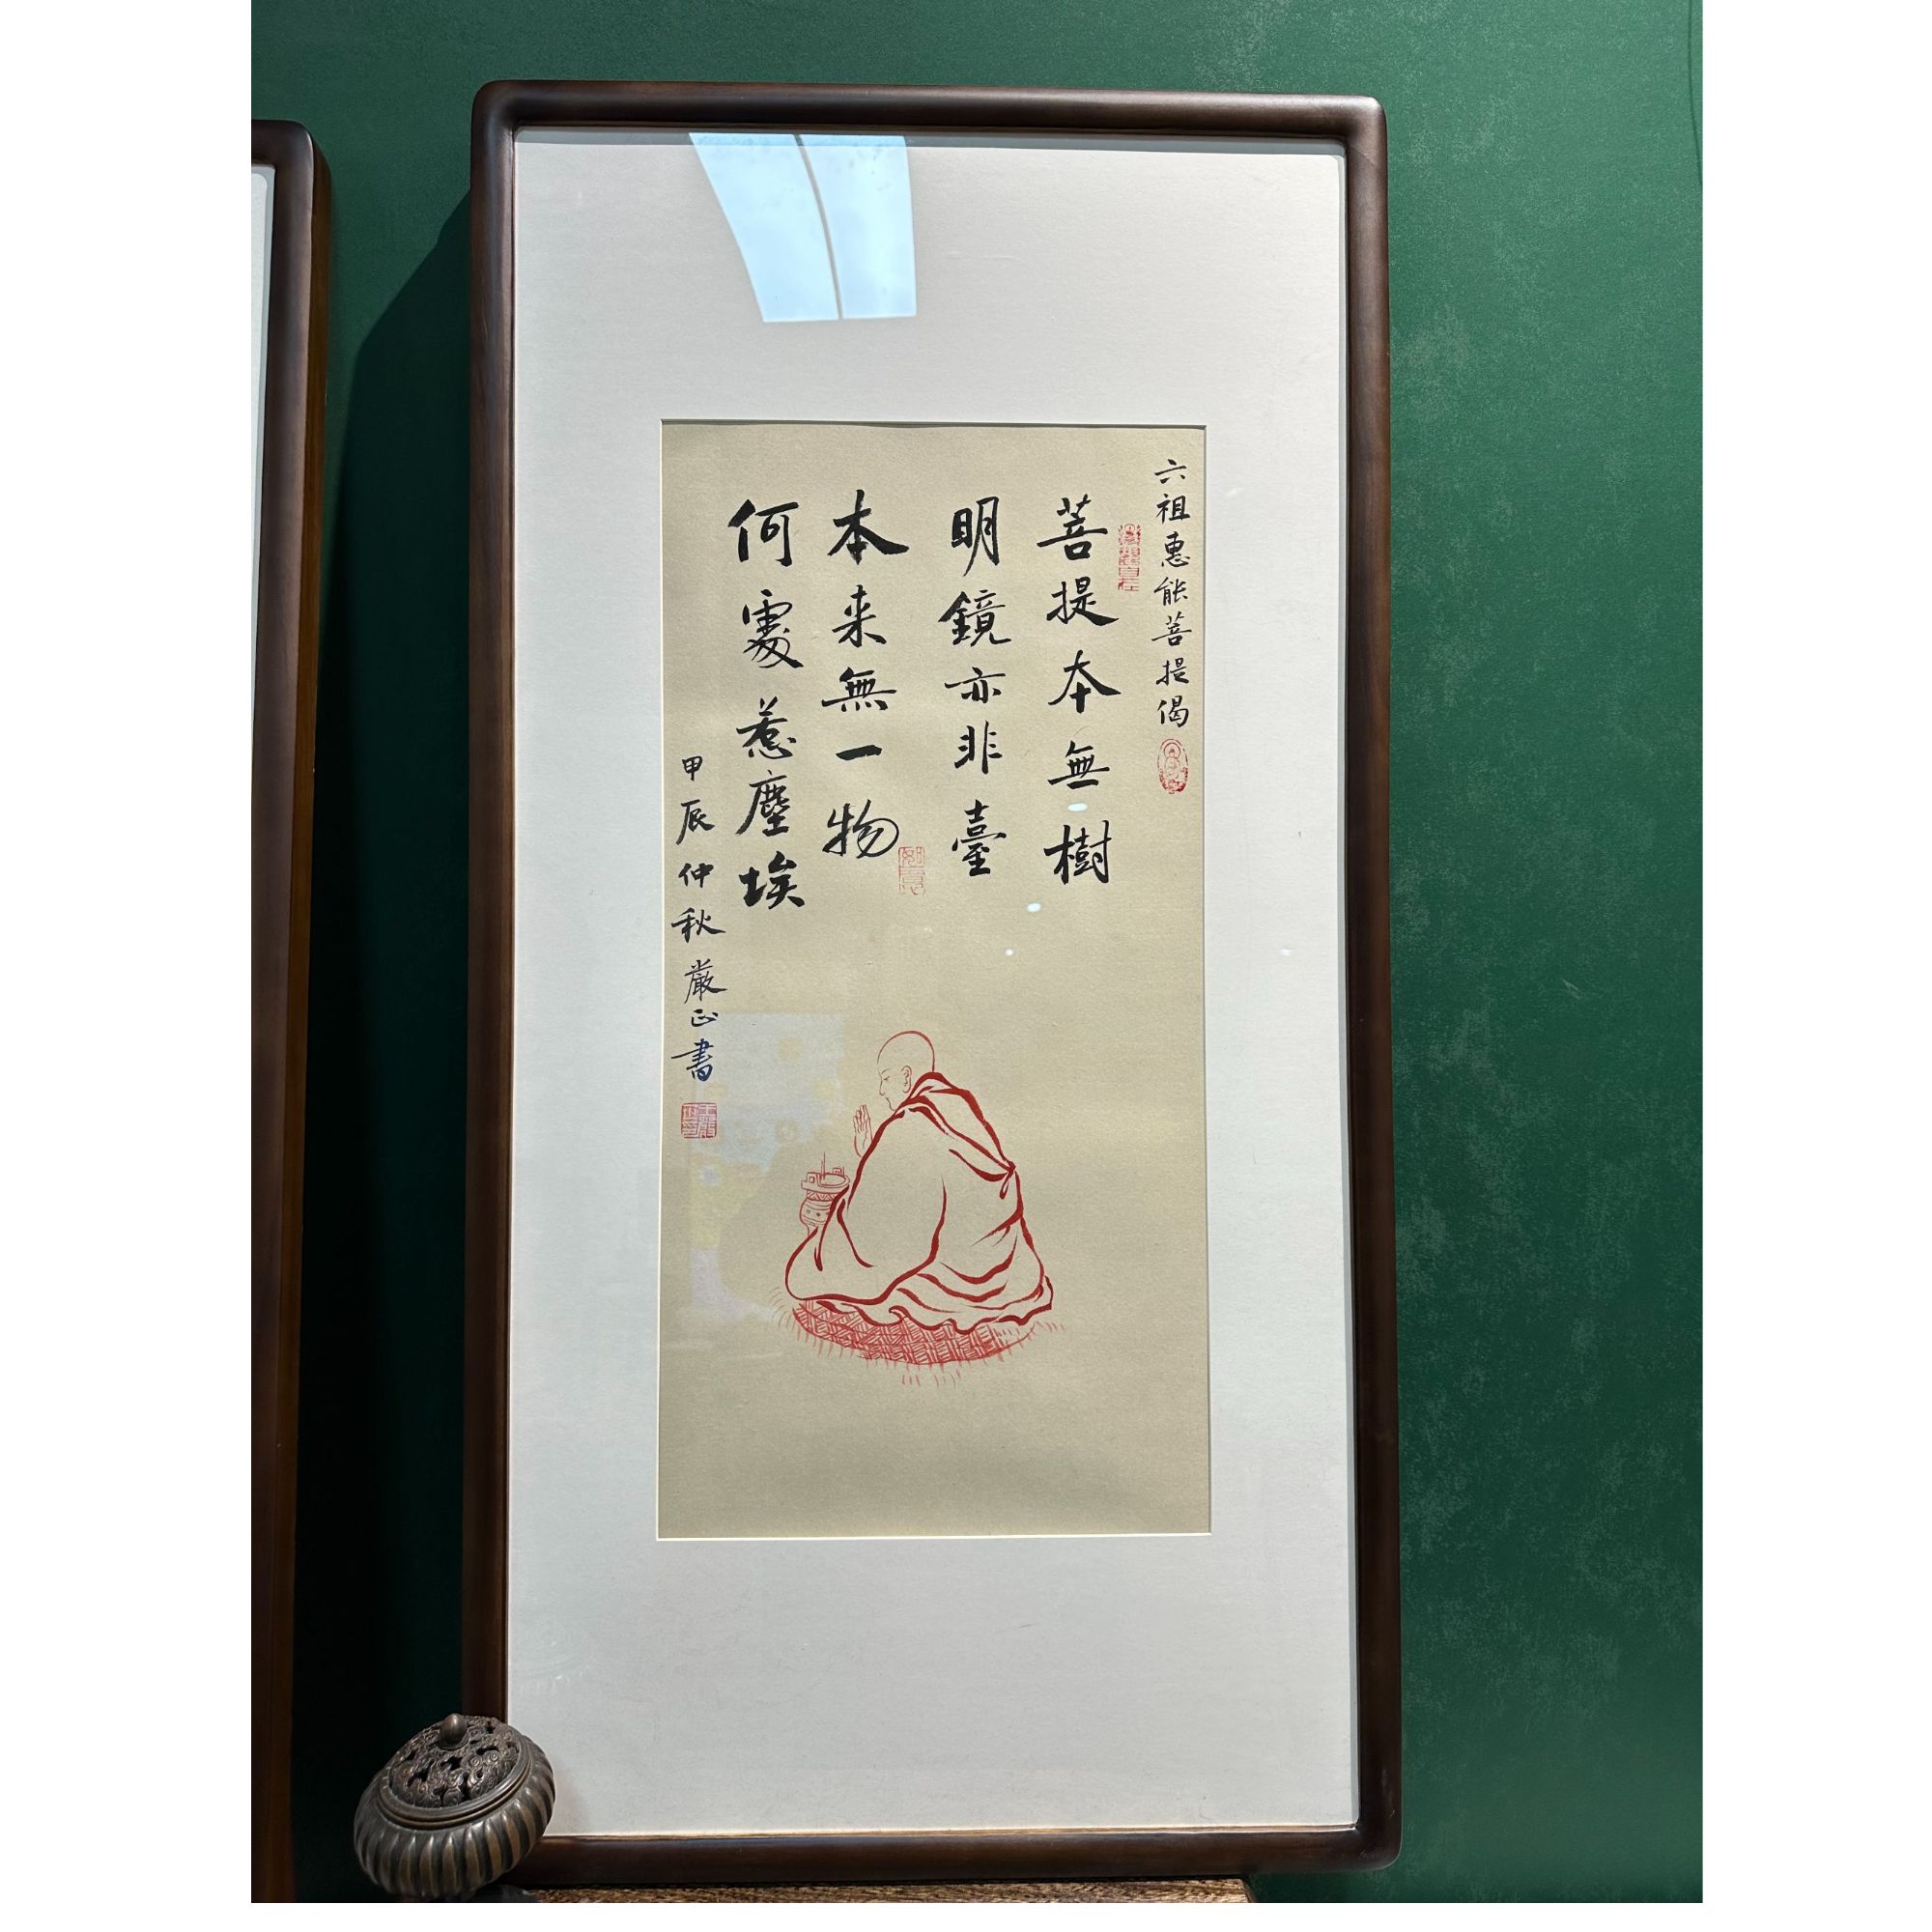 六祖惠能菩提偈
菩提本無樹
明鏡亦非臺
本来無一物
何處惹塵埃
甲辰仲秋嚴正書